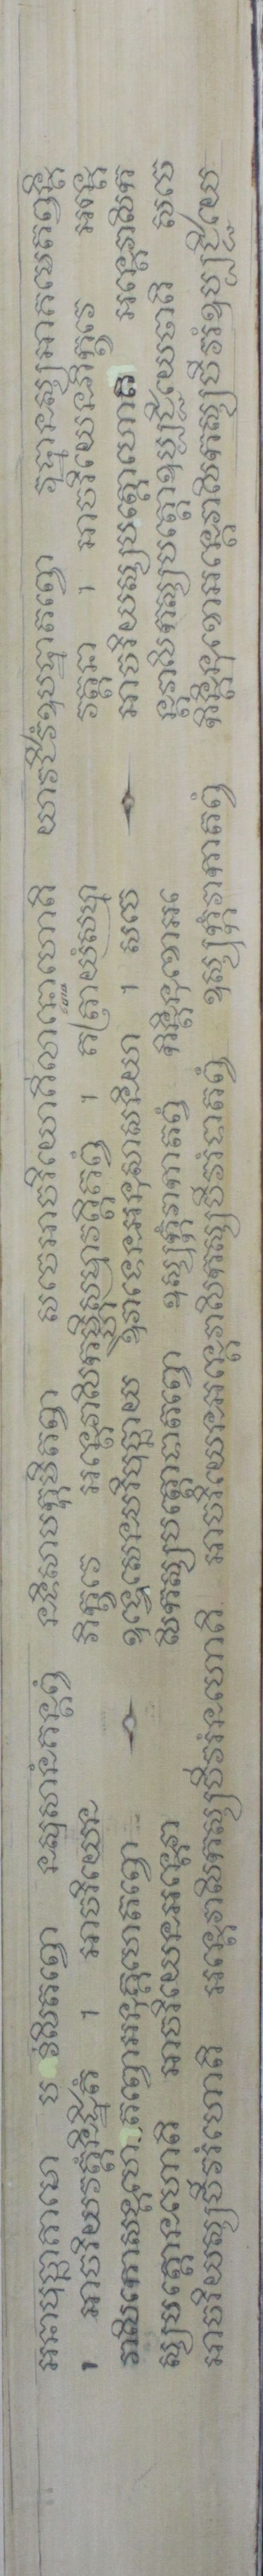 អនាបុច្ឆាគាមោ ប វិសិតព្វោ នសុសានំគន្តព្វំ នទិសាបក្កមិតព្វា សចេអាចរិយោគិលានោហោតិ យាវជីវំឧបដ្ឋាតព្វោ វុដ្ឋានស្សអាគមេតព្វន្តិ
។ អាចរិយវត្តំនិដ្ឋិតំ ។ អាចរិយេន ភិក្ខវេ អន្តេវាសិកម្ហិសម្មាវត្តិតព្វំ ។ តត្រាយំសម្មា វត្តនា ។ អាចរិយេនភិក្ខវេ អន្តេ
វាសិកោសង្គហេតព្វោអនុគ្គហេតព្វោ ឧទ្ទេសេនបរិបុច្ឆាយ ឱវាទេនអនុសាសនិយា ។ សចេ អាចរិយស្សបត្តោហោតិ អន្តេវាសិក
ស្សបត្តោនហោតិ អាចរិយេនអន្តេវា សិកស្សបត្តោទាតព្វោ ឧស្សុក្កំវាកាតព្វំ កិន្តិនុខោអន្តេ ន្តេវាសិកស្សបត្តោឧប្បជ្ជិយេថាតិ សចេ
អាចរិយស្សចីវរំហោតិ អន្តេវាសិកស្សចីវរំនហោតិ អាចរិយេនអន្តេវាសិកស្សចីវរំទាតព្វំ ឧស្សុក្កំវាកាតព្វំ កិន្តិនុខោអន្តេវាសិកស្សចីវរំឧប្បជ្ជិយេ